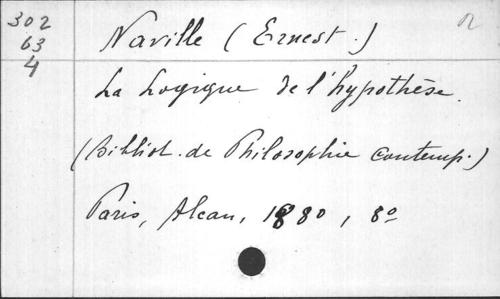 302
63
4
Naville (Ernest.)
La Logique de l'hypothèse.
(Bibliot. de Philosophie contemp.)
Paris, Alcan, 1880, 8o